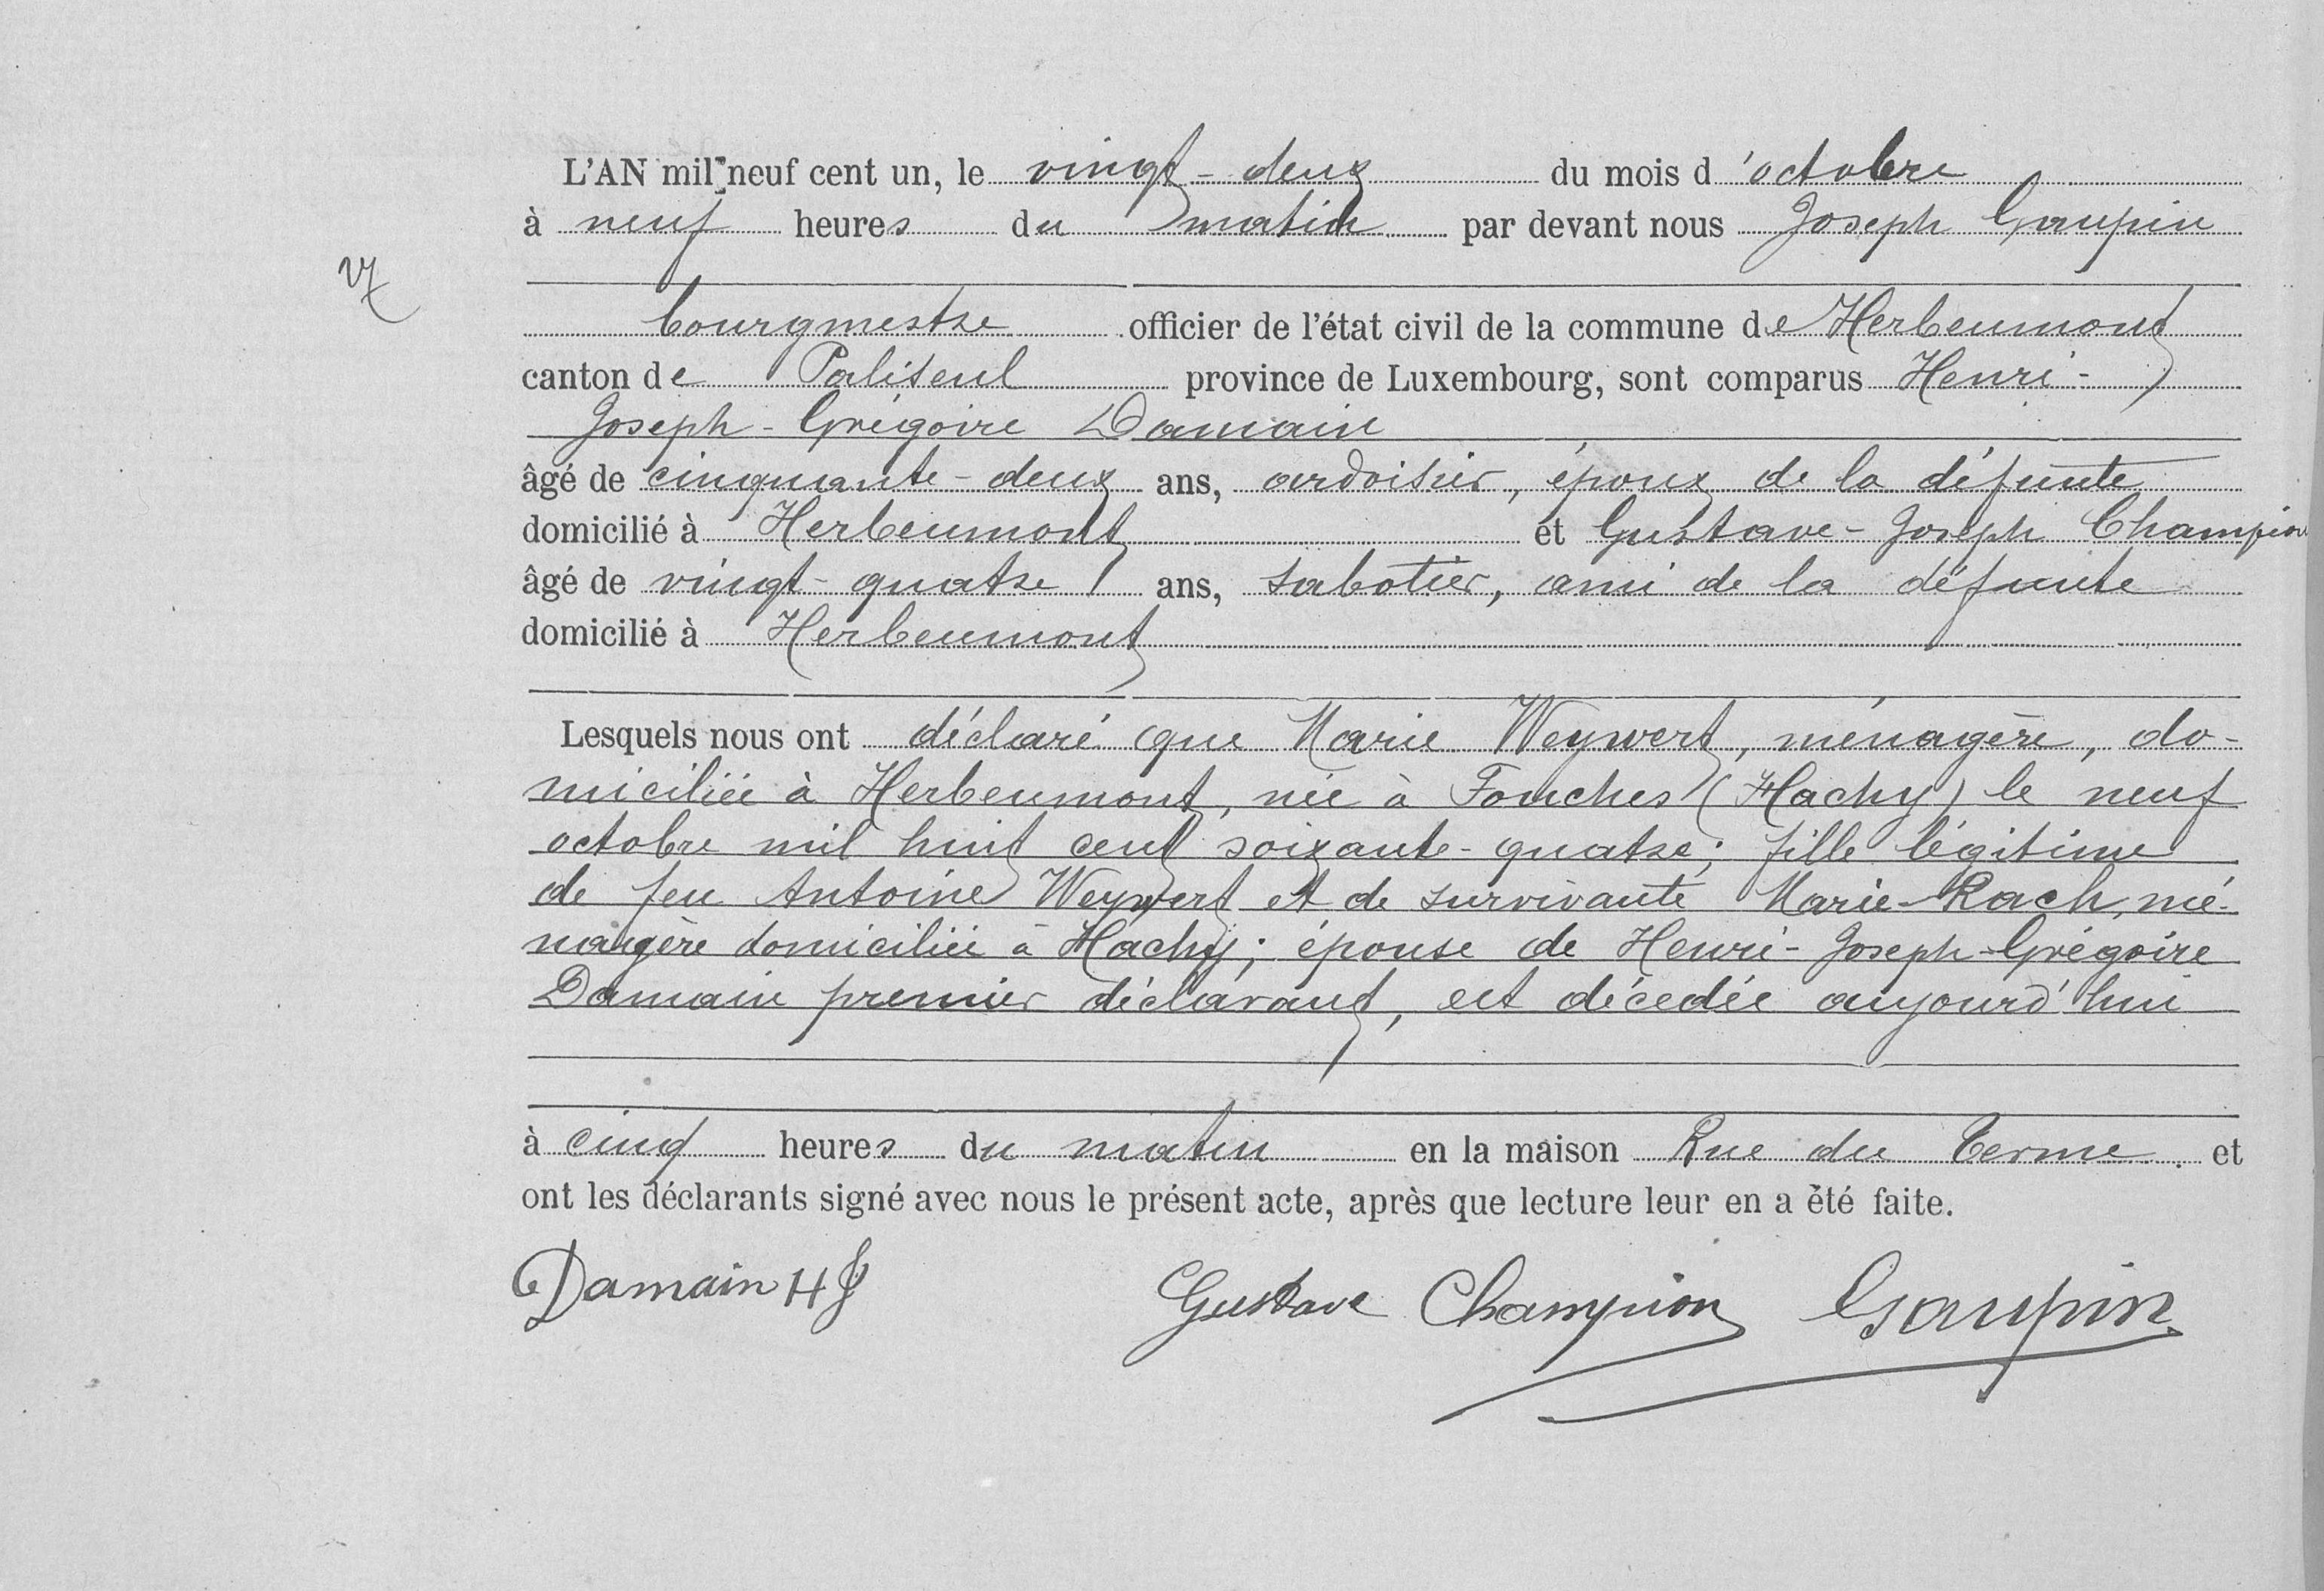 L'AN mil neuf cent un, le vingt-deux du mois d'octobre
à neuf heures du matin par devant nous Joseph Gaupin
bourgmestre officier de l'état civil de la commune de Herbeumont
canton de Paliseul province de Luxembourg, sont comparus Henri-
Joseph-Grégoire Damain
âgé de cinquante-deux ans, ardoisier, époux de la défunte
domicilié à Herbeumont et Gustave-Joseph Champion
âgé de vingt-quatre ans, sabotier, ami de la défunte
domicilié à Herbeumont
Lesquels nous ont déclaré que Marie Weywert, ménagère, do-
miciliée à Herbeumont, née à Fouches (Hachy) le neuf
octobre mil huit cent soixante-quatre; fille légitime
de feu Antoine Weywert et de survivante Marie Rach, mé-
nagère domiciliée à Hachy; épouse de Henri-Joseph-Grégoire
Damain premier déclarant, est décédée aujourd'hui
à cinq heures du matin en la maison Rue du Terme et
ont les déclarants signé avec nous le présent acte, après que lecture leur en a été faite.
Damain HJ Gustave Champion Gaupin